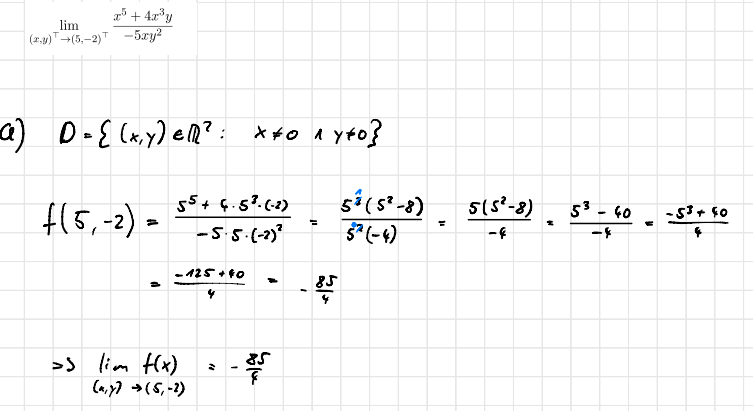 lim (x,y)^⊤→(5,−2)^⊤ (x^5 + 4x^3y)/(−5xy^2)
a) D = { (x,y) ∈ ℝ^2 : x≠0 ∧ y≠0 }
f(5,-2) = (5^5 + 4·5^3·(-2))/(-5·5·(-2)^2) = (5^3(5^2-8))/(5^2(-4)) = (5(5^2-8))/(-4) = (5^3 - 40)/(-4) = (-5^3 + 40)/4
= (-125+40)/4 = - 85/4
=> lim (x,y) → (5,-2) f(x) = - 85/4